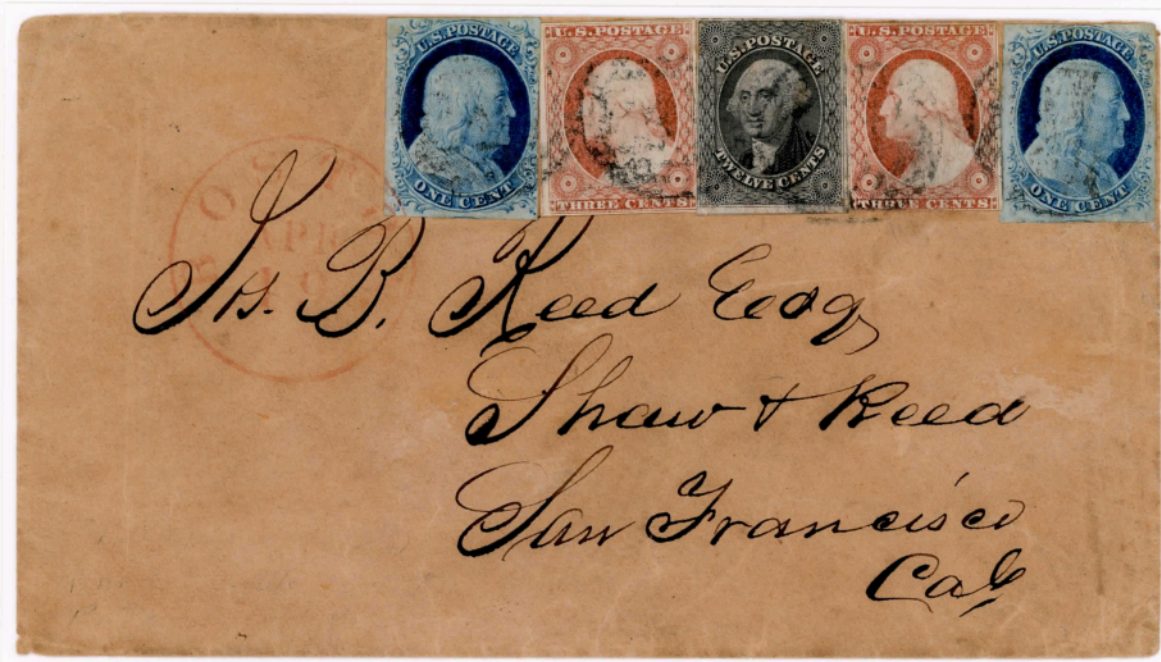 U.S. POSTAGE
ONE CENT
U.S. POSTAGE
THREE CENTS
U.S. POSTAGE
TWELVE CENTS
U.S. POSTAGE
THREE CENTS
U.S. POSTAGE
ONE CENT
APR
10
Js. B. Reed Esq
Shaw & Reed
San Francisco
Cal